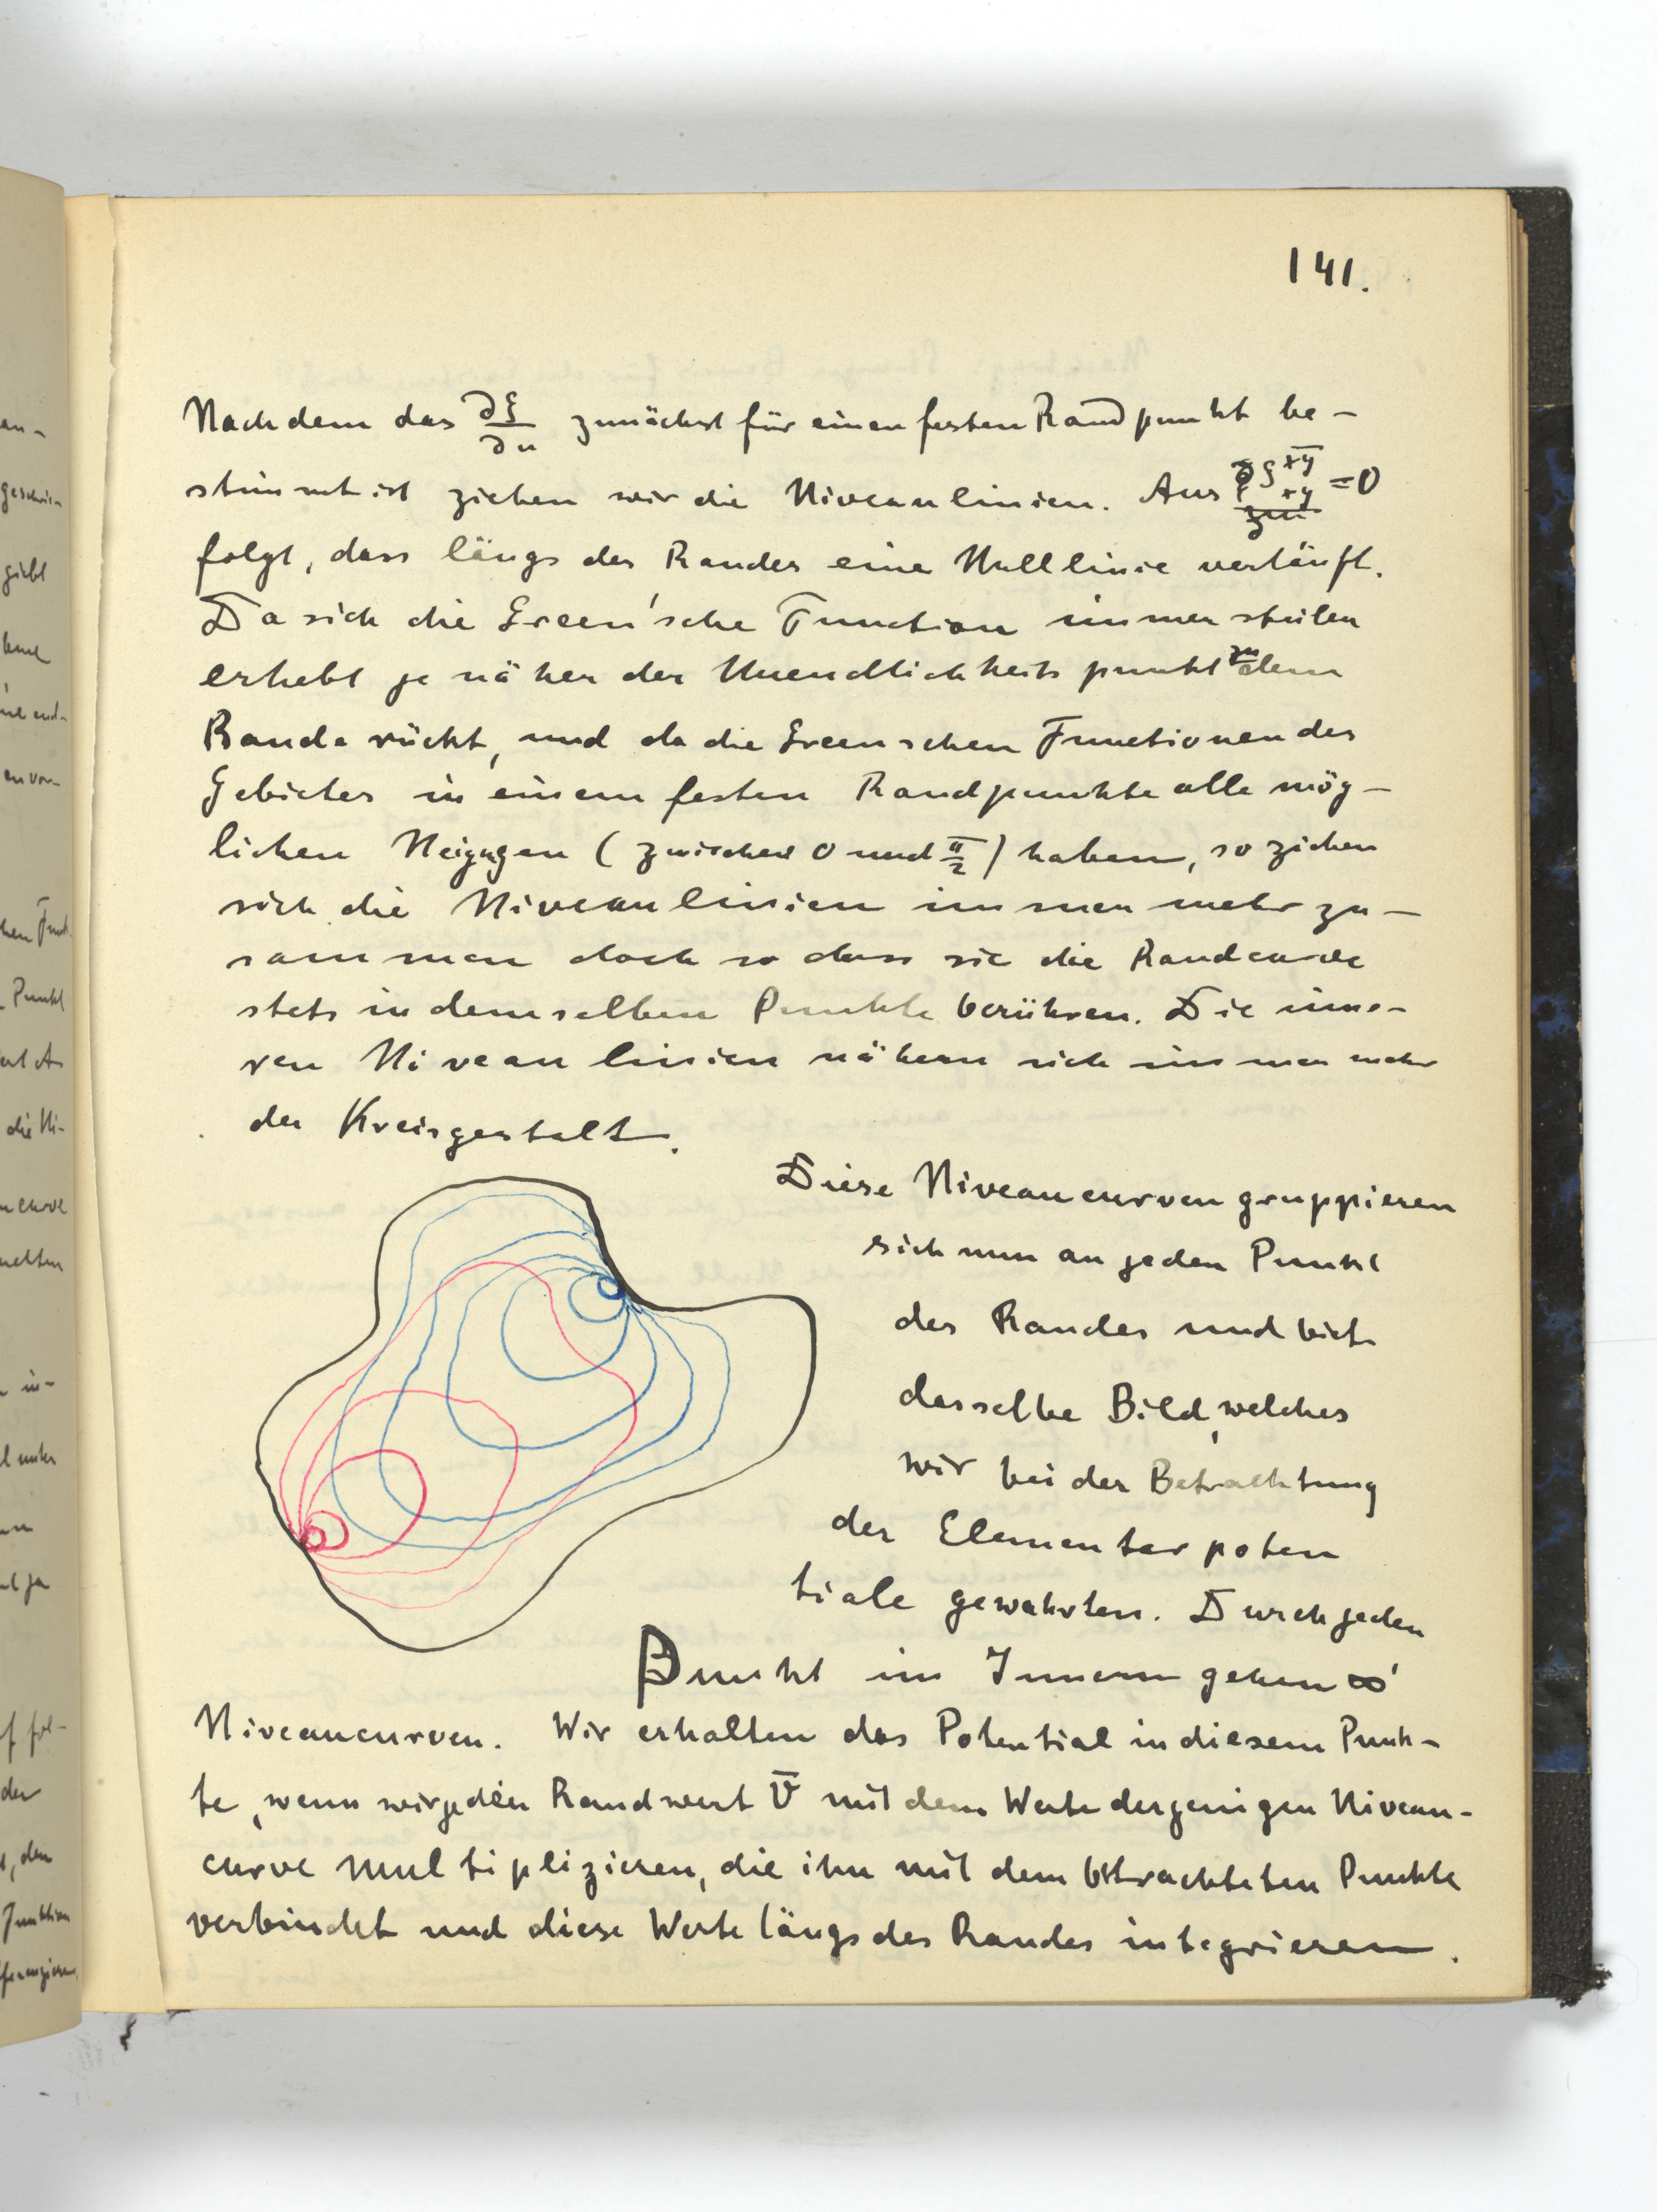 141.
Nachdem das ∂g/∂n zunächst für einen festen Randpunkt be-
stimmt ist ziehen wir die Niveaulinien. Aus g xy xy = 0
folgt, dass längs des Randes eine Nulllinie verläuft.
Da sich die Green'sche Function immer steiler
erhebt je näher der Unendlichkeitspunkt zu dem
Rande rückt, und da die Greenschen Functionen des
Gebietes in einem festen Randpunkte alle mög-
lichen Neigugen (zwischen 0 und π/2) haben, so ziehen
sich die Niveaulinien immer mehr zu-
sammen doch so dass sie die Randcurve
stets in demselben Punkte berühren. Die inne-
ren Niveaulinien nähern sich immer mehr
der Kreisgestalt.
Diese Niveaucurven gruppieren
sich nun an jeden Punkt
des Randes und biet
dasselbe Bild, welches
wir bei der Betrachtung
der Elementarpoten
tiale gewahrten. Durch jeden
Punkt im Innern gehen ∞'
Niveaucurven. Wir erhalten das Potential in diesem Punk-
te, wenn wir jeden Randwert V̄ mit dem Werte derjenigen Niveau-
curve multiplizieren, die ihn mit dem betrachteten Punkte
verbindet und diese Werte längs des Randes integrieren.